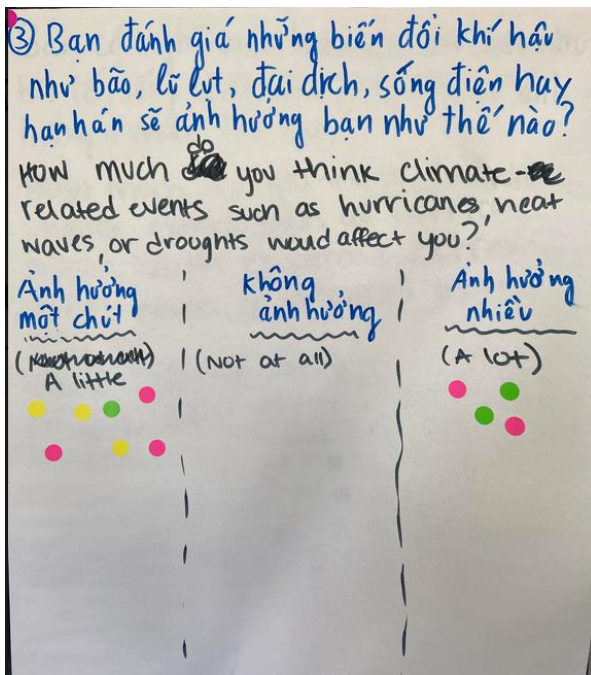 ③ Bạn đánh giá những biến đổi khí hậu
như bão, lũ lụt, đại dịch, sóng điên hay
hạn hán sẽ ảnh hưởng bạn như thế nào?
How much do you think climate-
related events such as hurricanes, heat
waves, or droughts would affect you?
Ảnh hưởng
một chút
(
A little
Không
ảnh hưởng
(Not at all)
Ảnh hưởng
nhiều
(A lot)